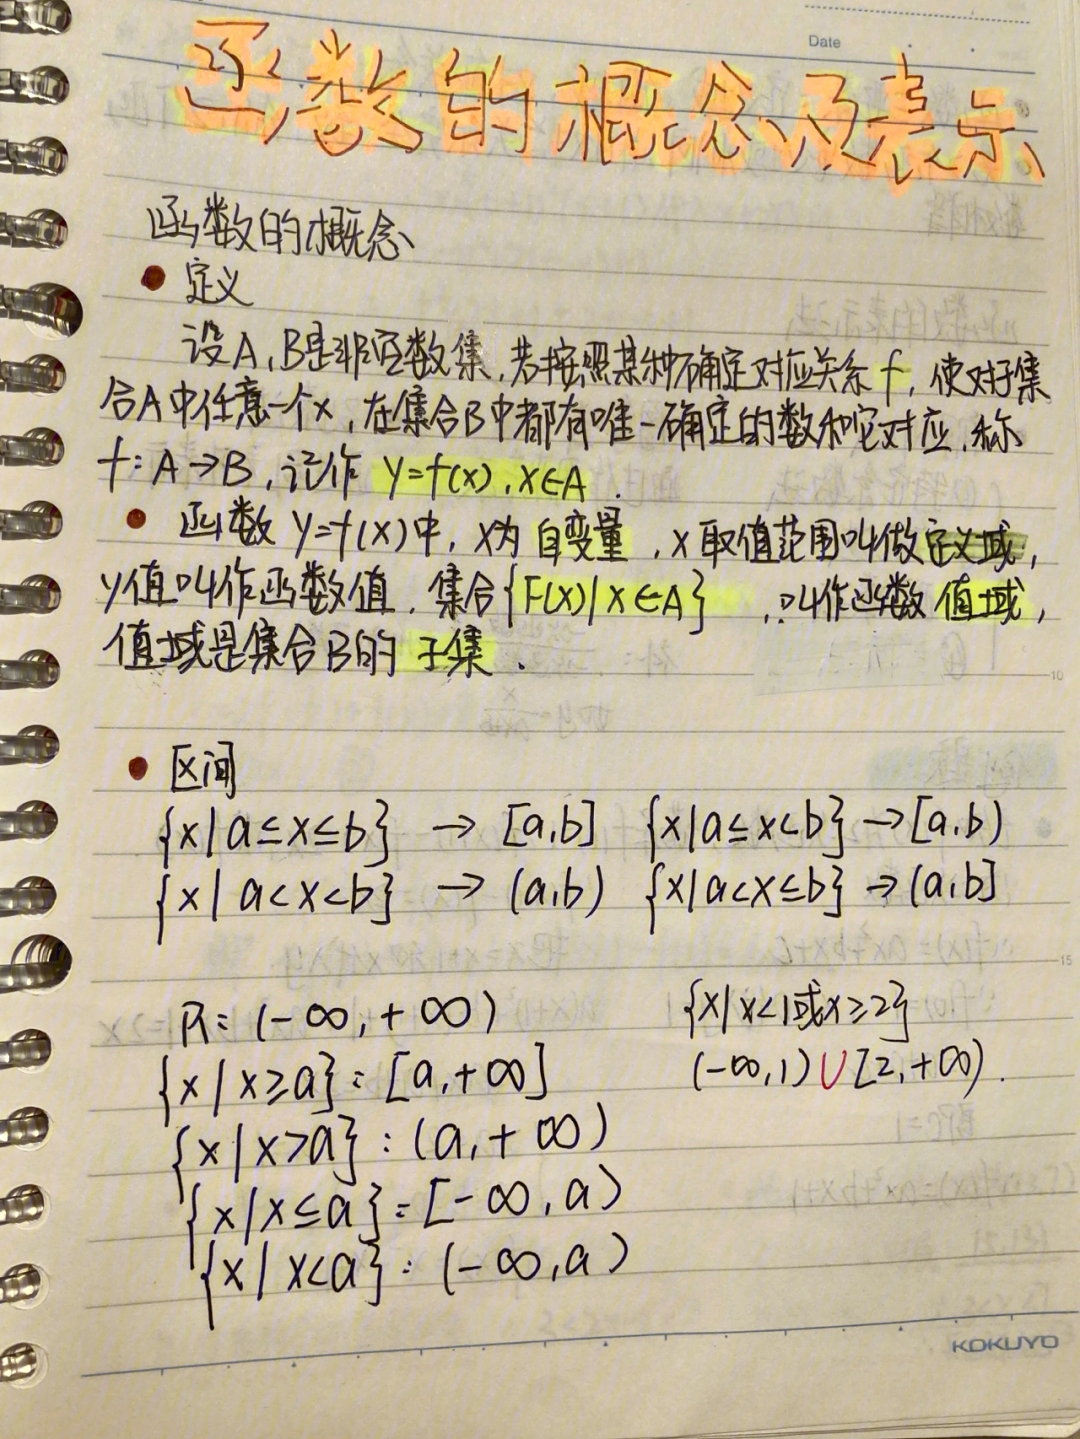 Date
函数的概念及表示
函数的概念
定义
设A,B是非空数集,若按照某种确定对应关系f,使对于集
合A中任意一个x,在集合B中都有唯一确定的数和它对应,称
f:A→B,记作 y=f(x),x∈A.
函数 y=f(x)中,x为自变量,x取值范围叫做定义域,
y值叫作函数值,集合{F(x)|x∈A},叫作函数值域,
值域是集合B的子集.
10
区间
{x|a≤x≤b} → [a,b] {x|a≤x<b}→[a,b)
{x|a<x<b} → (a,b) {x|a<x≤b}→(a,b]
15
R:(-∞,+∞) {x|x<1或x≥2}
{x|x≥a}:[a,+∞] (-∞,1)∪[2,+∞).
{x|x>a}:(a,+∞)
{x|x≤a}:[-∞,a)
{x|x<a}:(-∞,a)
KOKUYO